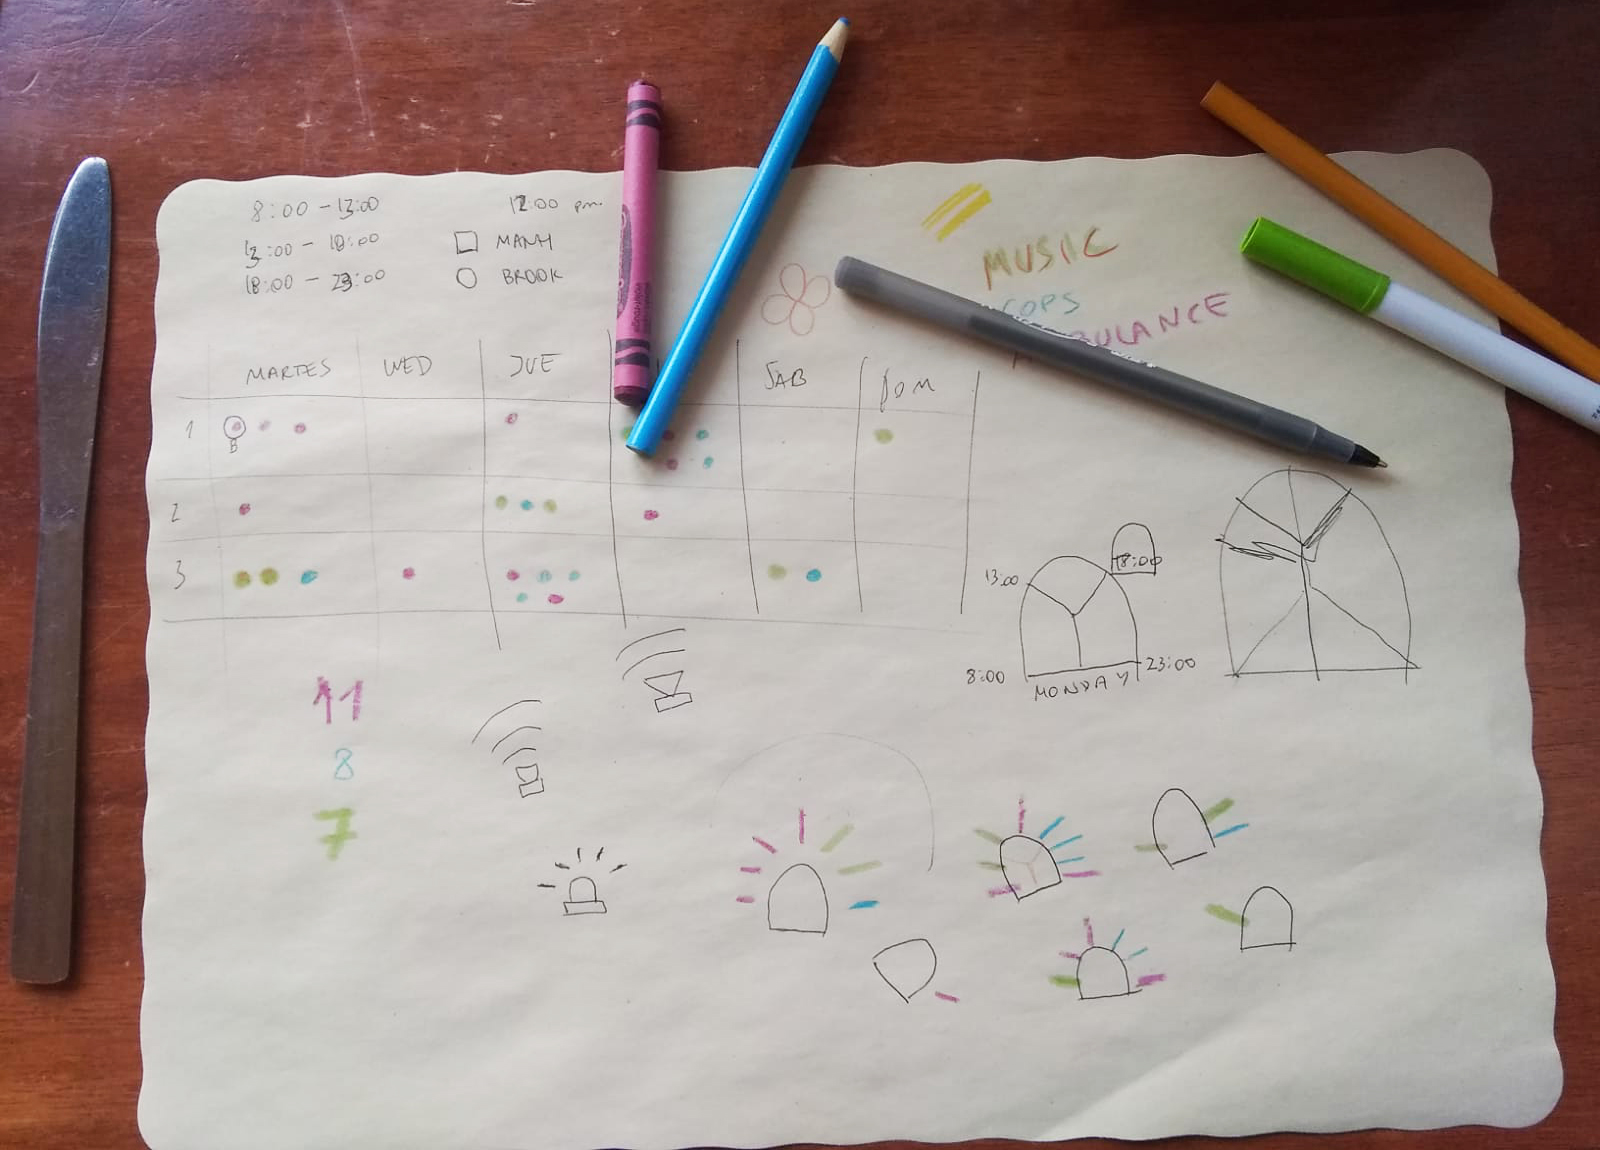 8:00 - 13:00
12:00 pm.
13:00 - 18:00
MANH
18:00 - 23:00
BROOK
MUSIC
COPS
AMBULANCE
MARTES WED JUE SAB DOM
1
B
2
3
13:00
18:00
8:00
23:00
MONDAY
11
8
7